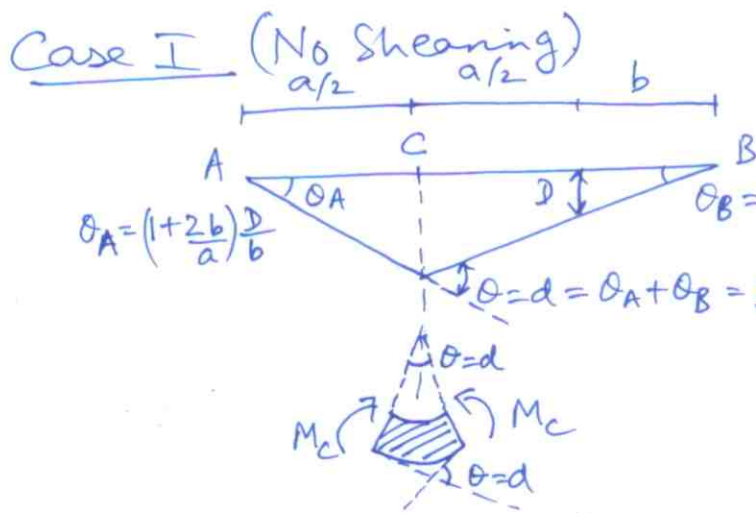 Case I (No Shearing)
a/2 a/2 b
A C B
θA D θB =
θA = (1 + 2b/a) D/b
θ = d = θA + θB =
θ = d
MC MC
θ = d